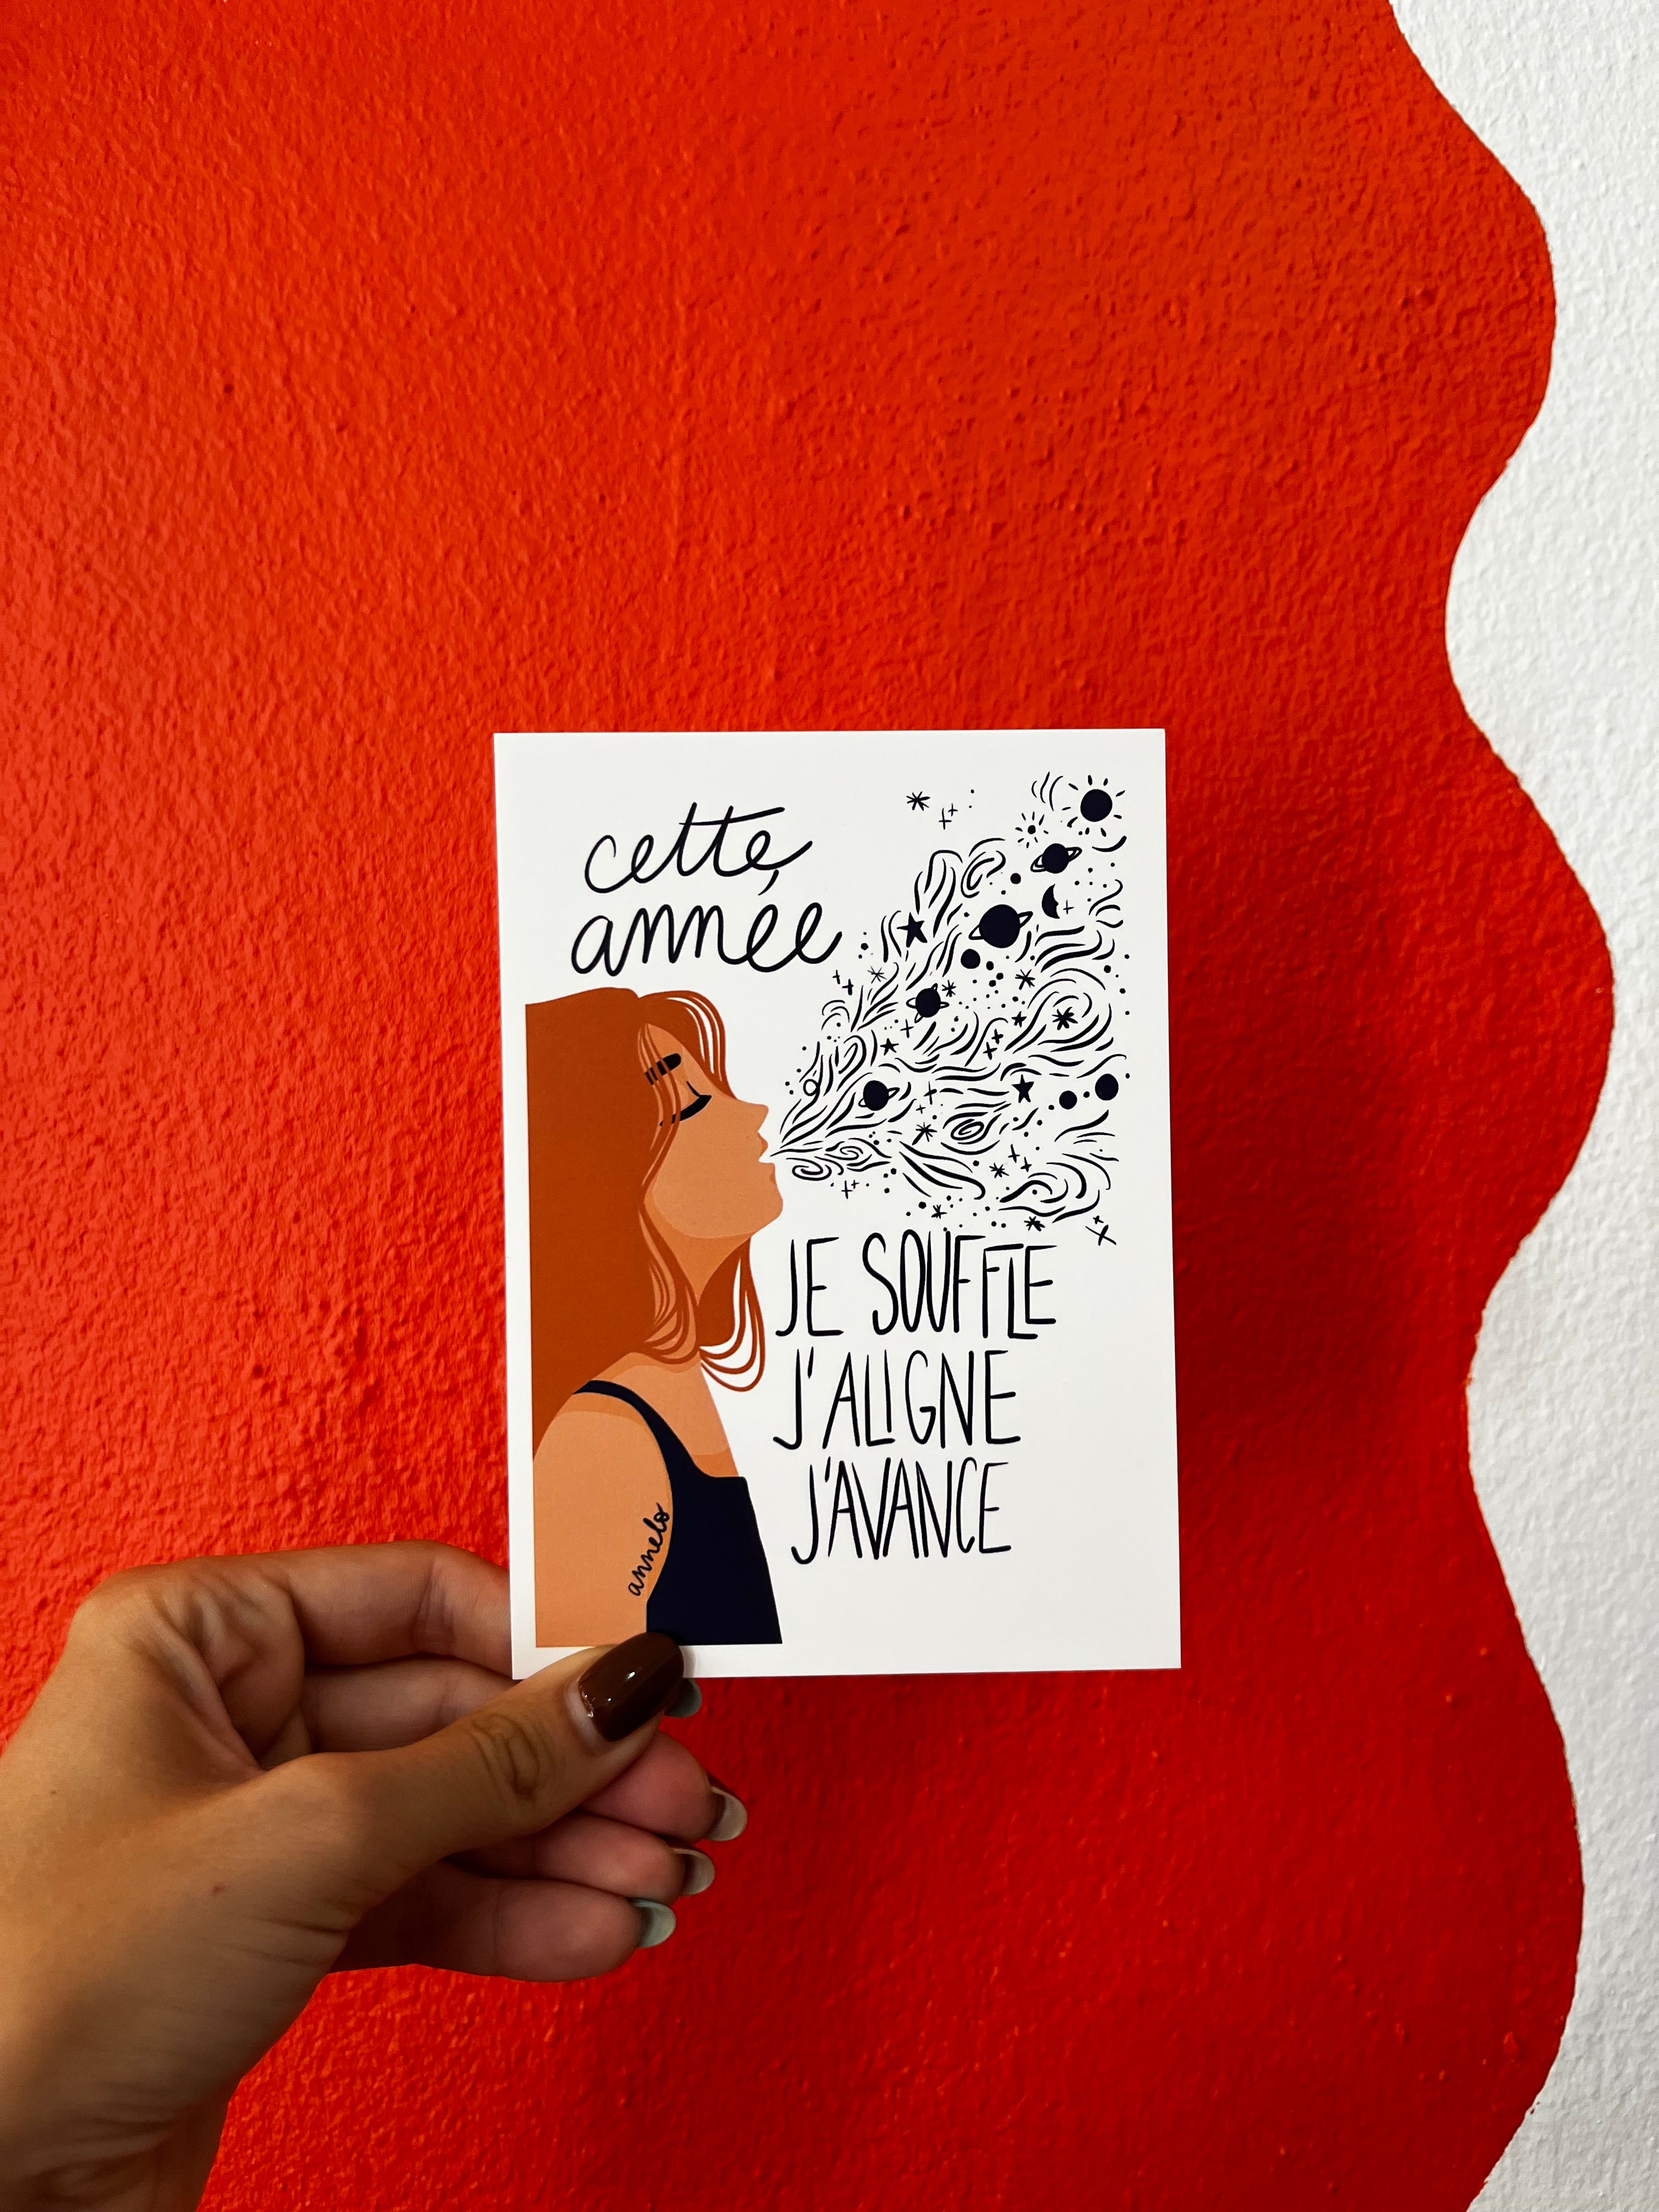 cette
année
JE SOUFFLE
J'ALIGNE
J'AVANCE
annelo